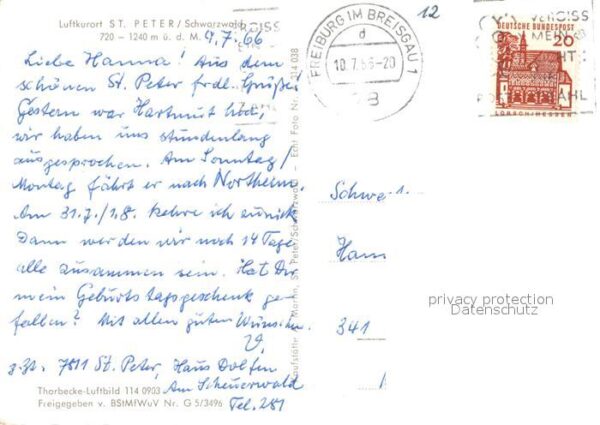 Luftkurort ST. PETER / Schwarzwald
720 – 1240 m ü. d. M.
9.7.66
Liebe Hanna! Aus dem
schönen St. Peter frdl. Grüße!
Gestern war Hartmut hier,
wir haben uns stundenlang
ausgesprochen. Am Sonntag/
Montag fährt er nach Northeim.
Am 31.7./1.8. kehre ich zurück
Dann werden wir noch 14 Tage
alle zusammen sein. Hat Dir
mein Geburtstagsgeschenk ge-
fallen? Mit allen guten Wünschen
z.Zt. 7811 St. Peter, Haus Dolfen
Am Scheuerwald
Tel. 281
Thorbecke-Luftbild 114 0903
Freigegeben v. BStMfWuV Nr. G 5/3496
Martin, St. Peter/Schwarzwald – Echt Foto Nr. 314 038
12
FREIBURG IM BREISGAU 1
d
10.7.66-20
78
VERGISS
MEIN
DEUTSCHE BUNDESPOST
20
LORSCH/HESSEN
Schwe
Han
341
privacy protection
Datenschutz